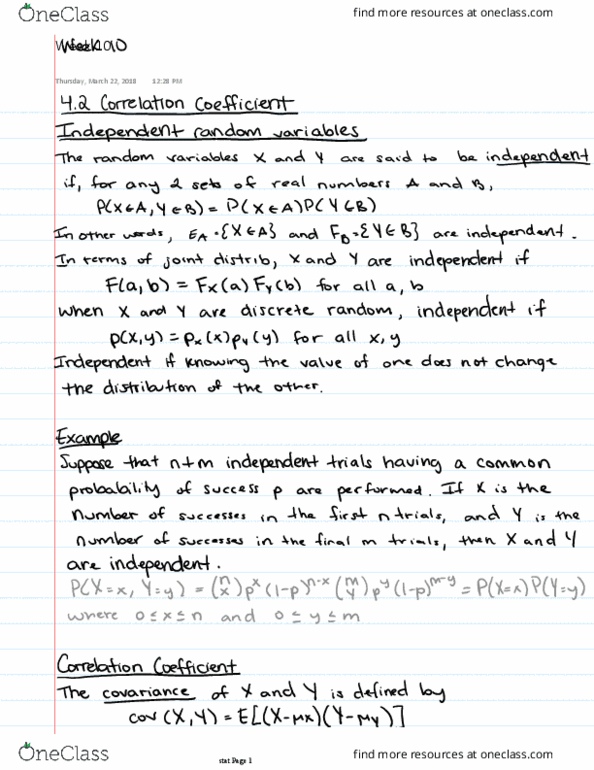 OneClass find more resources at oneclass.com
Thursday, March 22, 2018 12:28 PM
4.2 Correlation Coefficient
Independent random variables
The random variables X and Y are said to be independent
if, for any 2 sets of real numbers A and B,
P(X∈A, Y∈B) = P(X∈A)P(Y∈B)
In other words, E_A = {X∈A} and F_B = {Y∈B} are independent.
In terms of joint distrib, X and Y are independent if
F(a,b) = F_X(a) F_Y(b) for all a, b
When X and Y are discrete random, independent if
p(x,y) = p_x(x)p_y(y) for all x, y
Independent if knowing the value of one does not change
the distribution of the other.
Example
Suppose that n+m independent trials having a common
probability of success p are performed. If X is the
number of successes in the first n trials, and Y is the
number of successes in the final m trials, then X and Y
are independent.
P(X=x, Y=y) = (n x) p^x (1-p)^{n-x} (m y) p^y (1-p)^{m-y} = P(X=x) P(Y=y)
where 0≤x≤n and 0≤y≤m
Correlation Coefficient
The covariance of X and Y is defined by
cov(X,Y) = E[(X-μx)(Y-μy)]
stat Page 1
OneClass find more resources at oneclass.com